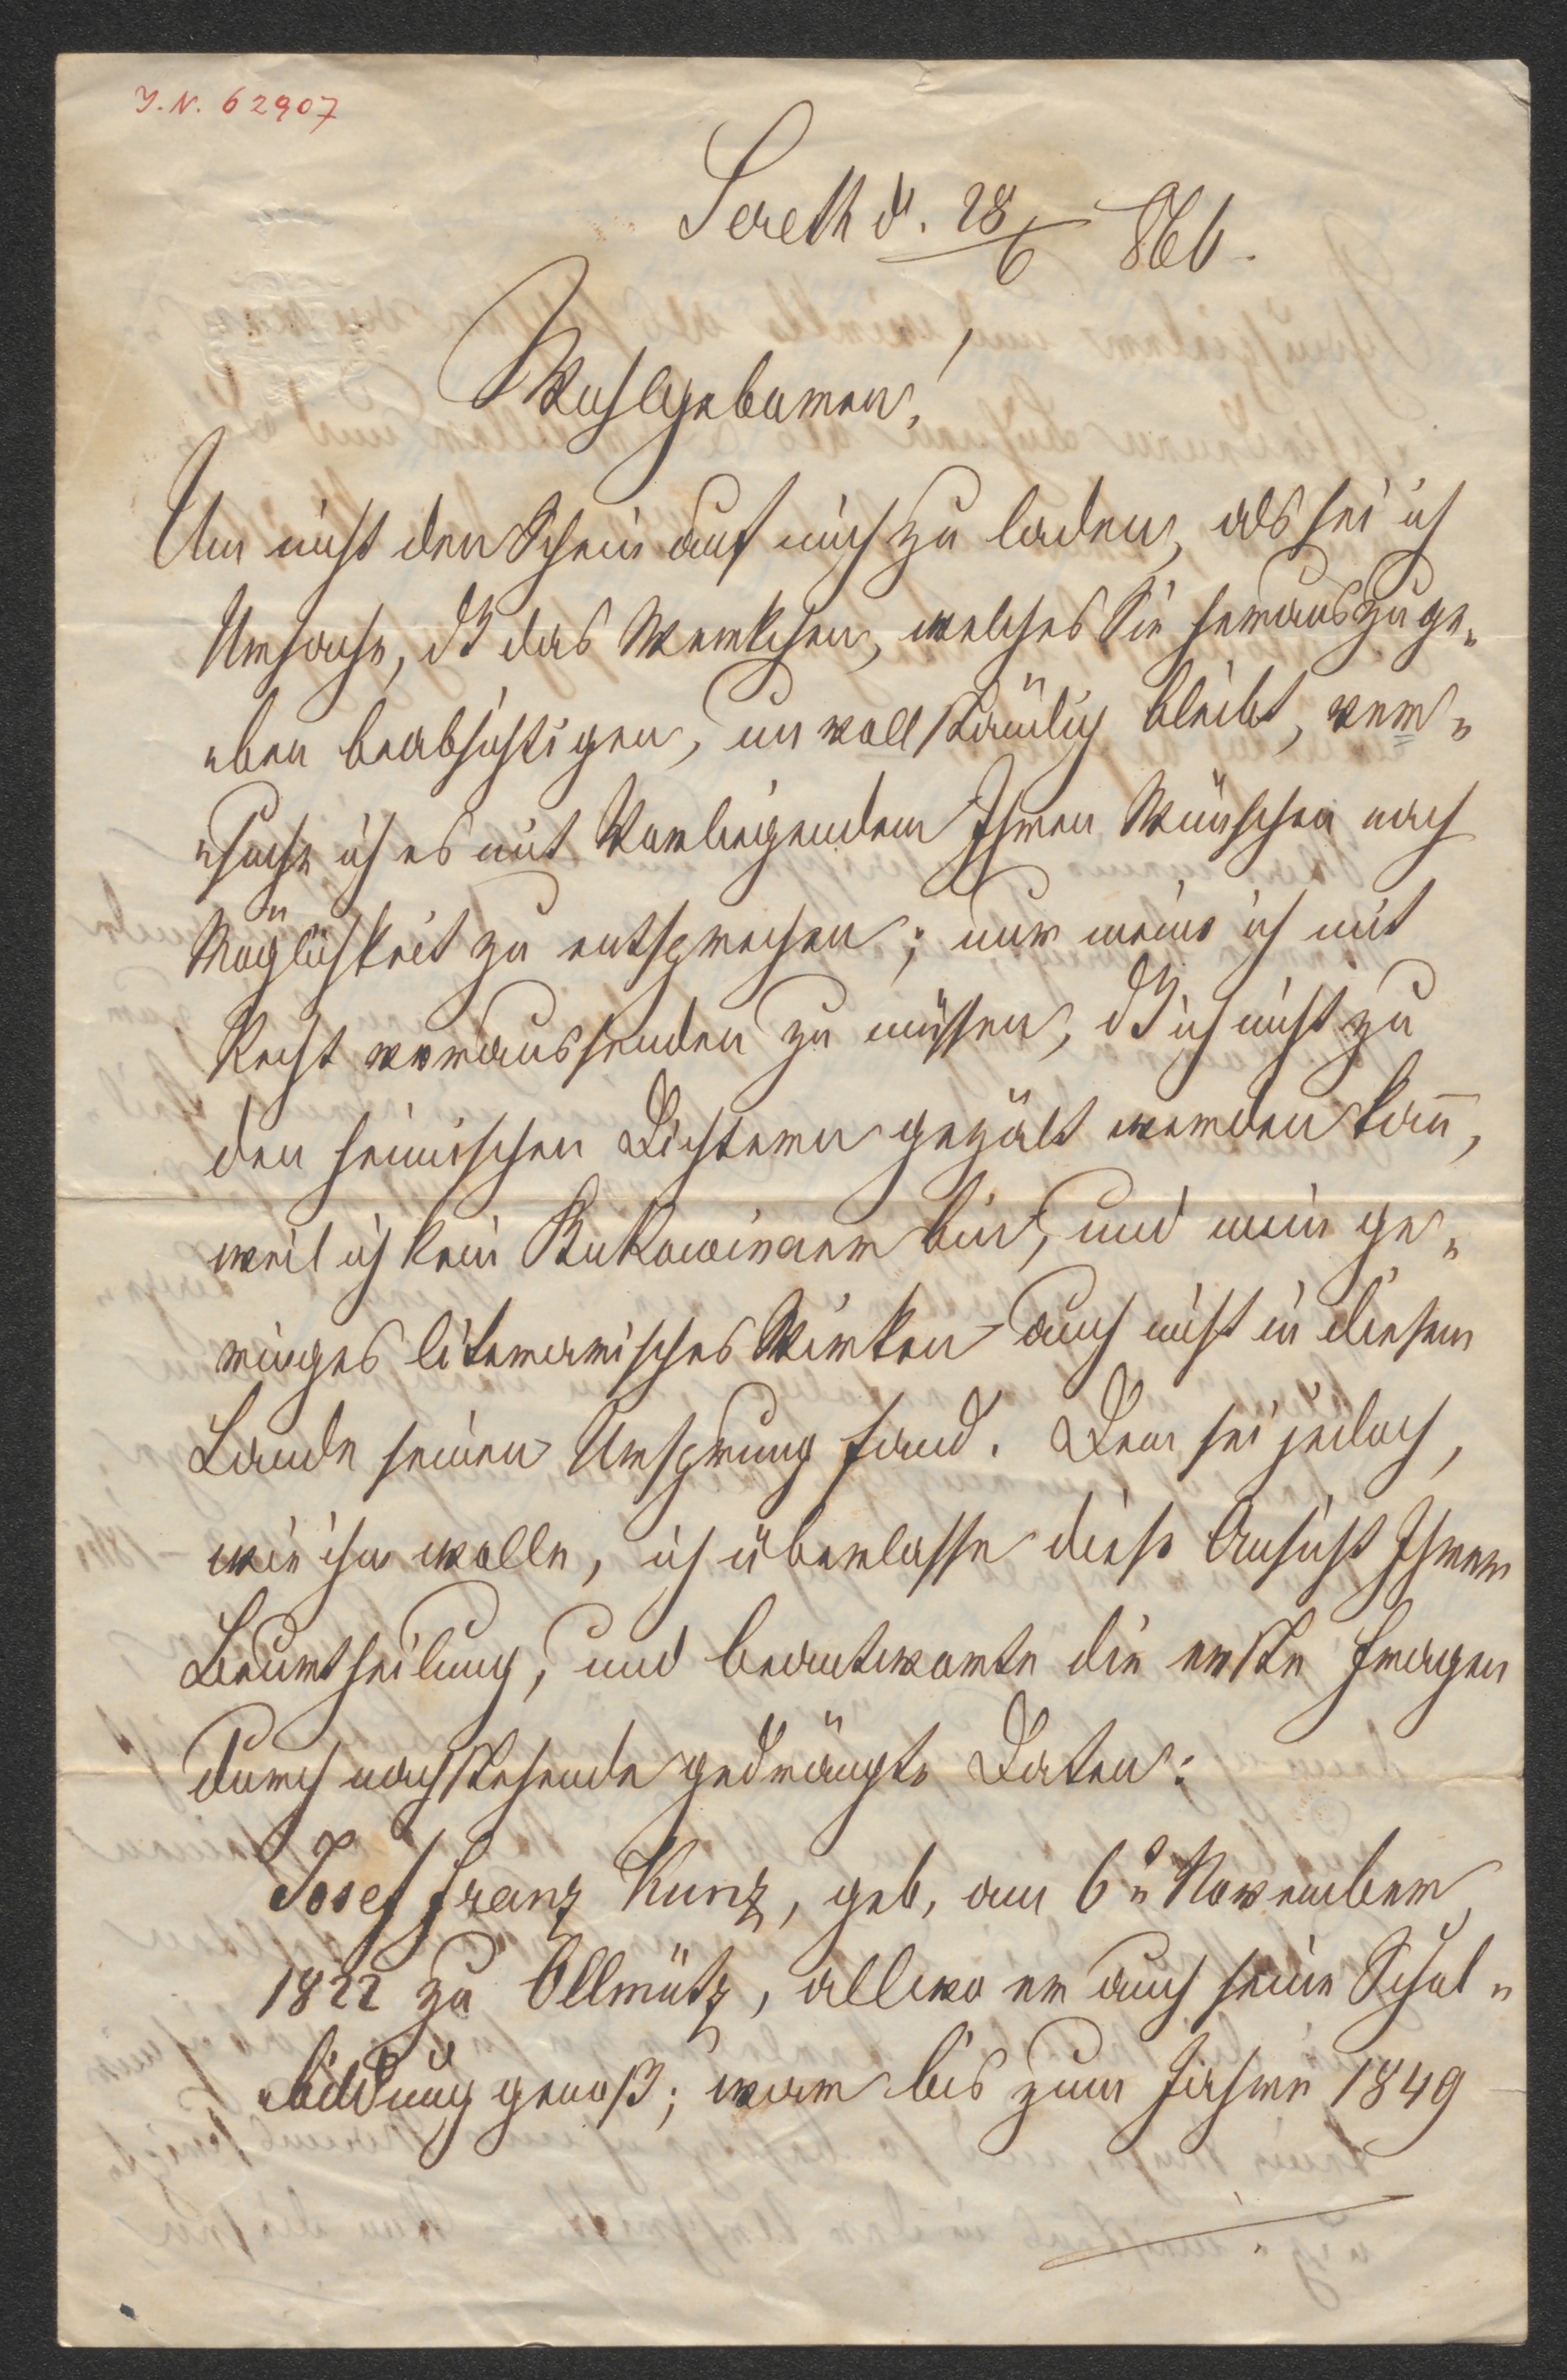 I. N. 62907
Sereth d. 28/6 866.
Wohlgeboren!
Um nicht den Schein auf mich zu laden, als sei ich
Ursache, dß das Werkchen, welches Sie herauszuge„
„ben beabsichtigen, unvollständig bleibt, ver„
„suche ich es mit Vorliegendem Ihren Wünschen nach
Möglichkeit zu entsprechen; nur meine ich mit
Recht voraussenden zu müssen, dß ich nicht zu
den heimischen Dichtern gezält werden kan̄,
weil ich kein Bukowinaer bin, und mein ge„
ringes literarisches Wirken auch nicht in diesem
Lande seinen Ursprung fand. Dem sei jedoch,
wie ihm wolle, ich überlasse diese Ansicht Ihrer
Beurtheilung, und beantworte die erste Fragen
durch nachstehende gedrängte Daten:
Josef Franz Kunz, geb. am 6n November
1822 zu Ollmütz, allwo er auch seine Schul„
„bildung genoß; war bis zum Jahre 1849